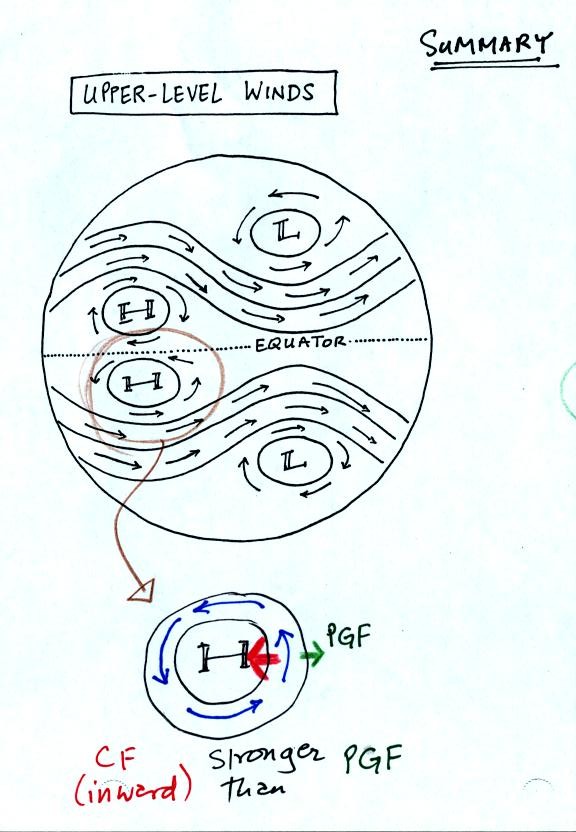 SUMMARY
UPPER-LEVEL WINDS
L
H
EQUATOR
H
L
H
PGF
CF stronger PGF
(inward) than